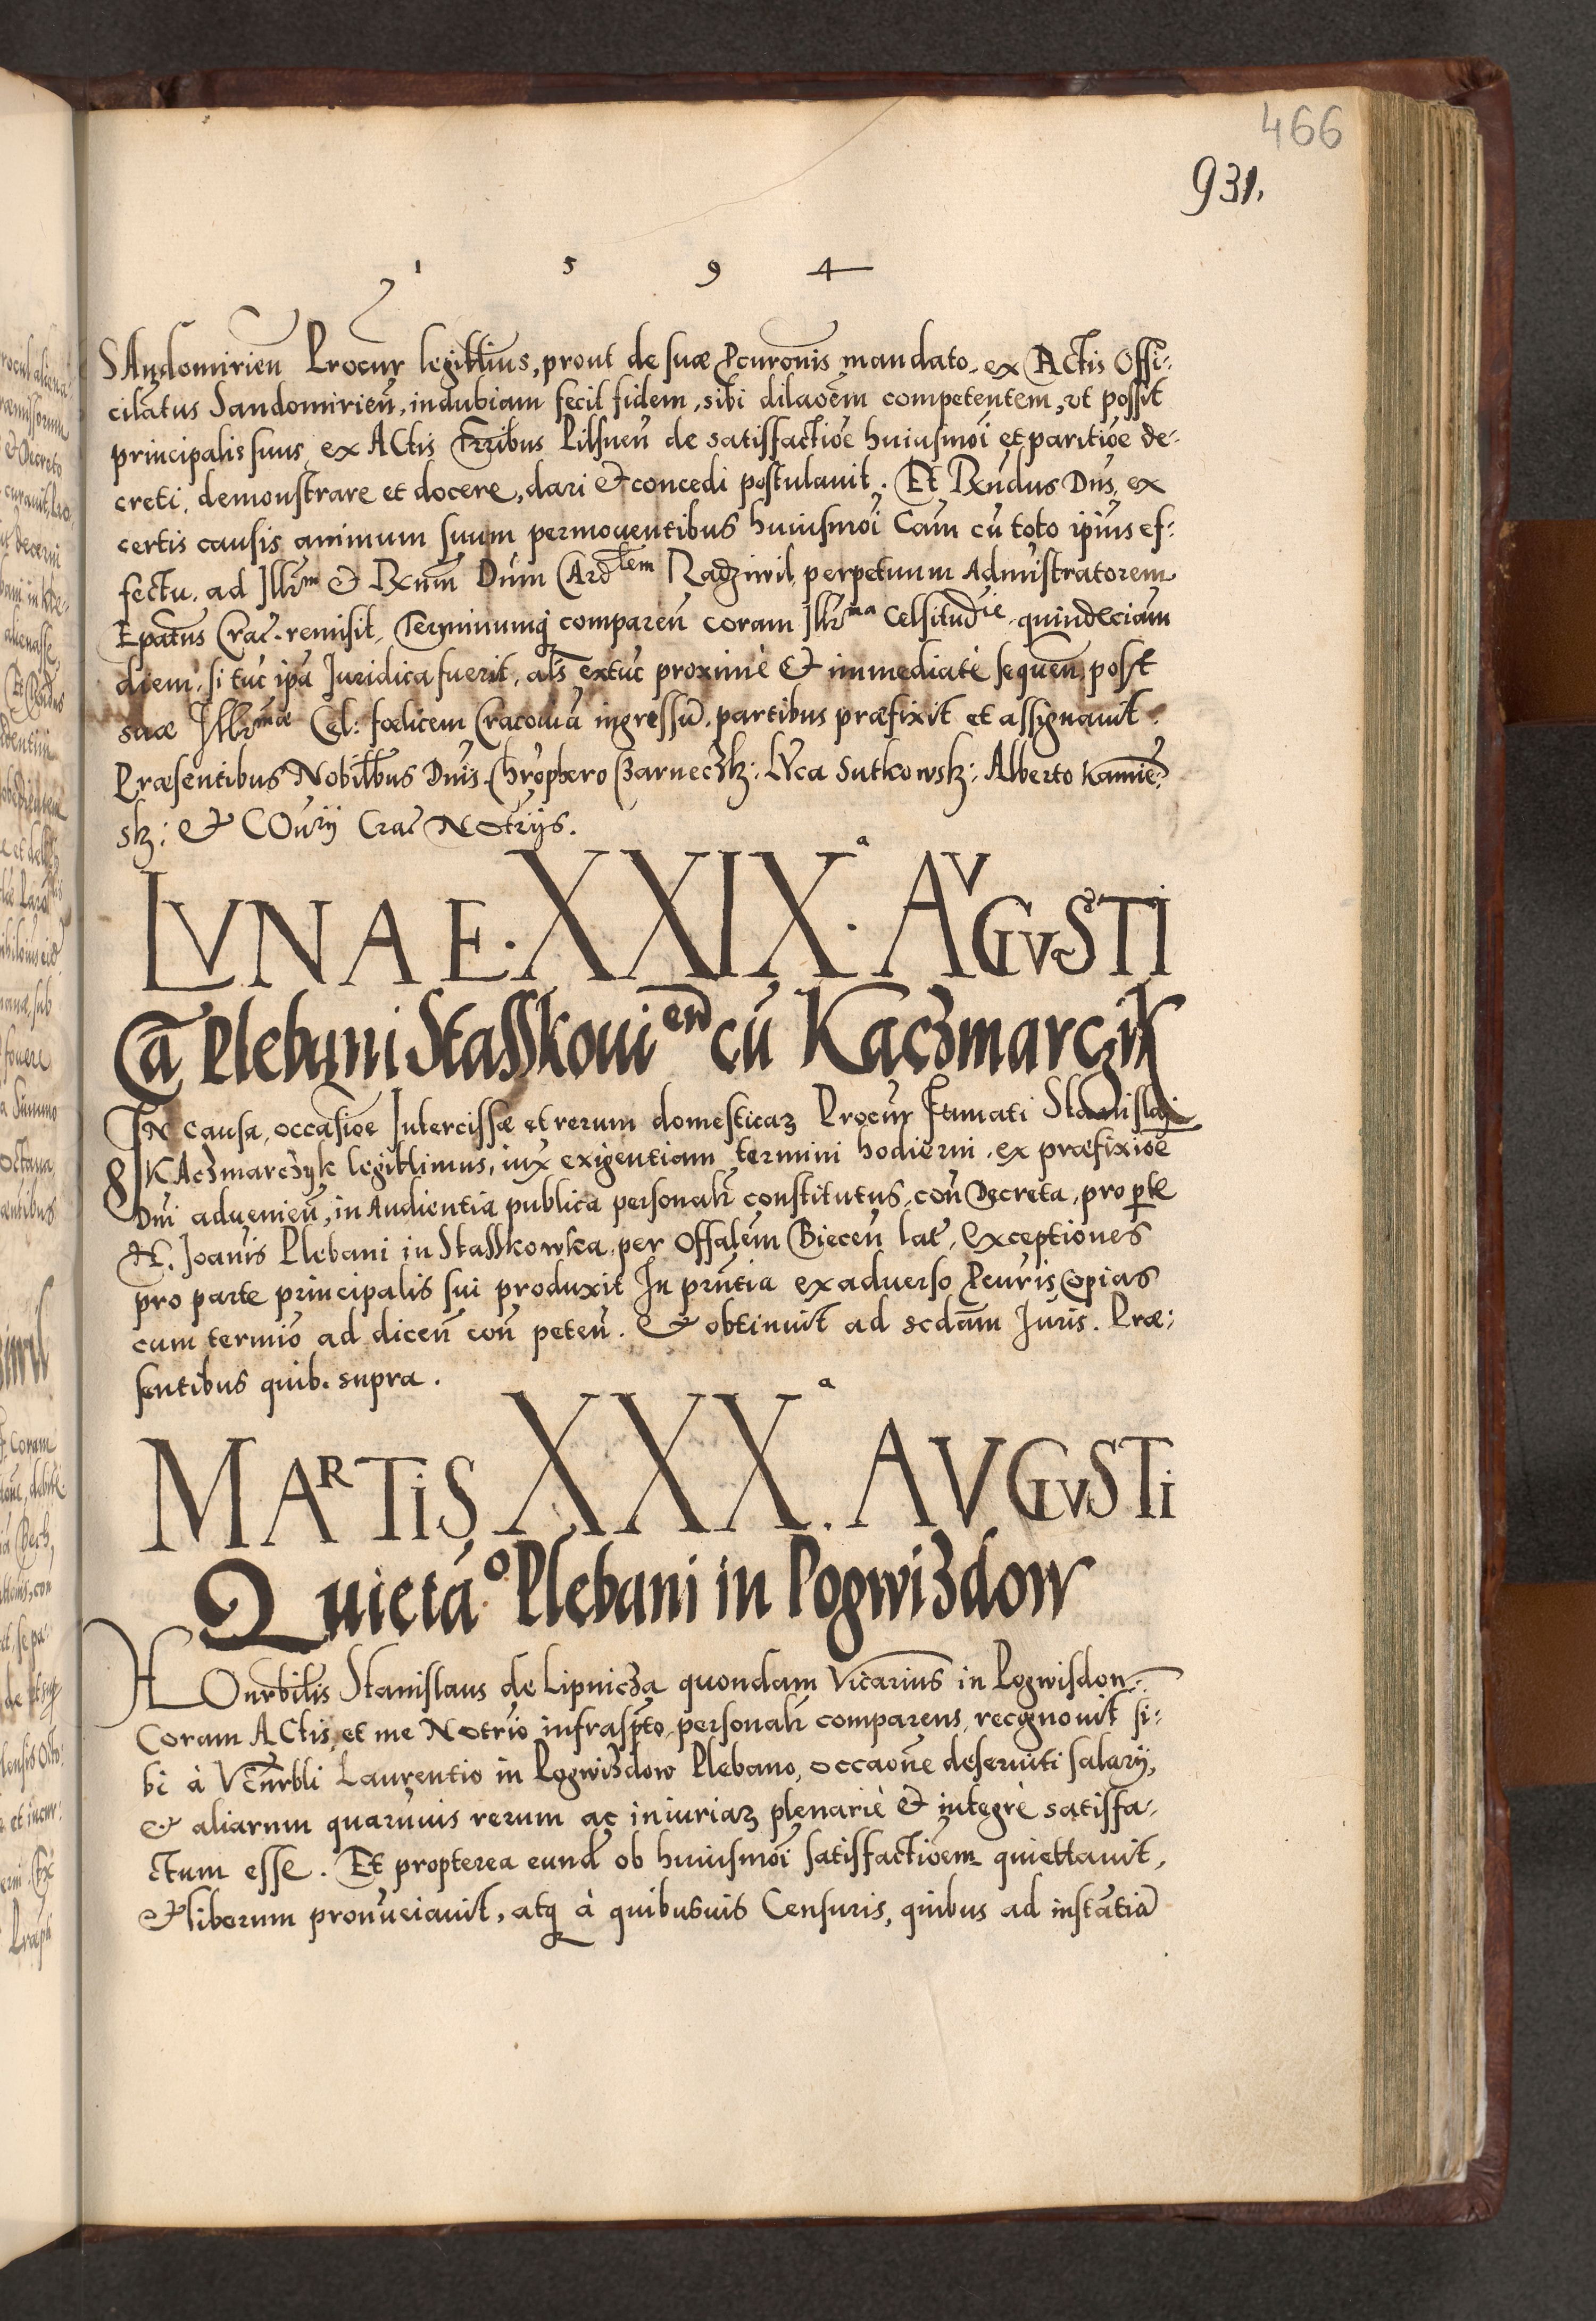 466
931.
1 5 9 4
SAndomirien̄ Procur̄ legittim̄us, prout de suæ Pcuron̄is mandato, ex Actis Offi:
cilatus Sandomirien̄, indubiam fecit fidem, sibi dilaoēm competentem, vt possit
principalis suus, ex Actis Trr̄ibus Pilsnen̄ de satisfactiōe huiusmōi et paritiōe de:
creti, demonstrare et docere, dari & concedi postulauit. Et Rn̄dus Dn̄s, ex
certis causis animum suum permouentibus huiusmōi Cam̄ cū toto ip̄ius ef:
fectu, ad Illr̄m & Rn̄m Dn̄m Cardlem Radziwil, perpetuum Admi͂stratorem
Ep̄atus Crac. remisit, Terminumq̨ comparen̄ coram Illr̄ma Celsitud̄ie, quindeciam
diem, si tūc ip̄a Iuridica fuerit, al̄s extūc proximè & immediatè sequen̄, post
suæ Illr̄mæ Cel: fœlicem Cracouiā ingressū, partibus præfixit et assignauit.
Præsentibus Nobil̄bus Dn̄is Chr̄ophero Czarneczk: Lvca Sutkowsk: Alberto Kamiē:
sk: & COur̄ij Crac Notr̄ijs.
LVNAE. XXIXa. AVGVSTI
Cā Plebani Stasskouien cū Kaczmarczik
IN causa, occasiōe Intercissæ et rerum domesticaꝝ Procur̄ Famati Stanislai
KAczmarczyk legittimus, iux̄ exigentiam termini hodierni, ex præfixiōe
Dn̄i aduenien̄, in Audientia publica personalr̄ constitutus, con̄ Decreta, pro p̄te
H. Ioan̄is Plebani in Stasskowka, per Offalēm Biecen̄ lat̄, exceptiones
pro parte principalis sui produxit In prn̄tia ex aduerso Pcur̄is Copias
cum termi͂o ad dicen̄ con̄ peten̄. & obtinuit ad scdām Iuris. Præ:
sentibus quib. supra.
MARTIS XXXa. AVGVSTI
Quietāo Plebani in Pogwizdow
HOnrbil̄is Stanislaus de Lipnicza quondam Vicarius in Pogwisdon̄
Coram Actis, et me Notr̄io infrasp̄to personalr̄ comparens, recognouit si:
bi à Ven̄rbli Laurentio in Pogwizdow Plebano, occaon̄e deseruiti salarij,
& aliarum quaruuis rerum ac iniuriaꝝ plenariè & integrè satisfa:
ctum esse. Et propterea eund̄ ob huiusmōi satisfactiōem quiettauit,
& liberum pronūciauit, atq̨ à quibusuis Censuris, quibus ad instātiā